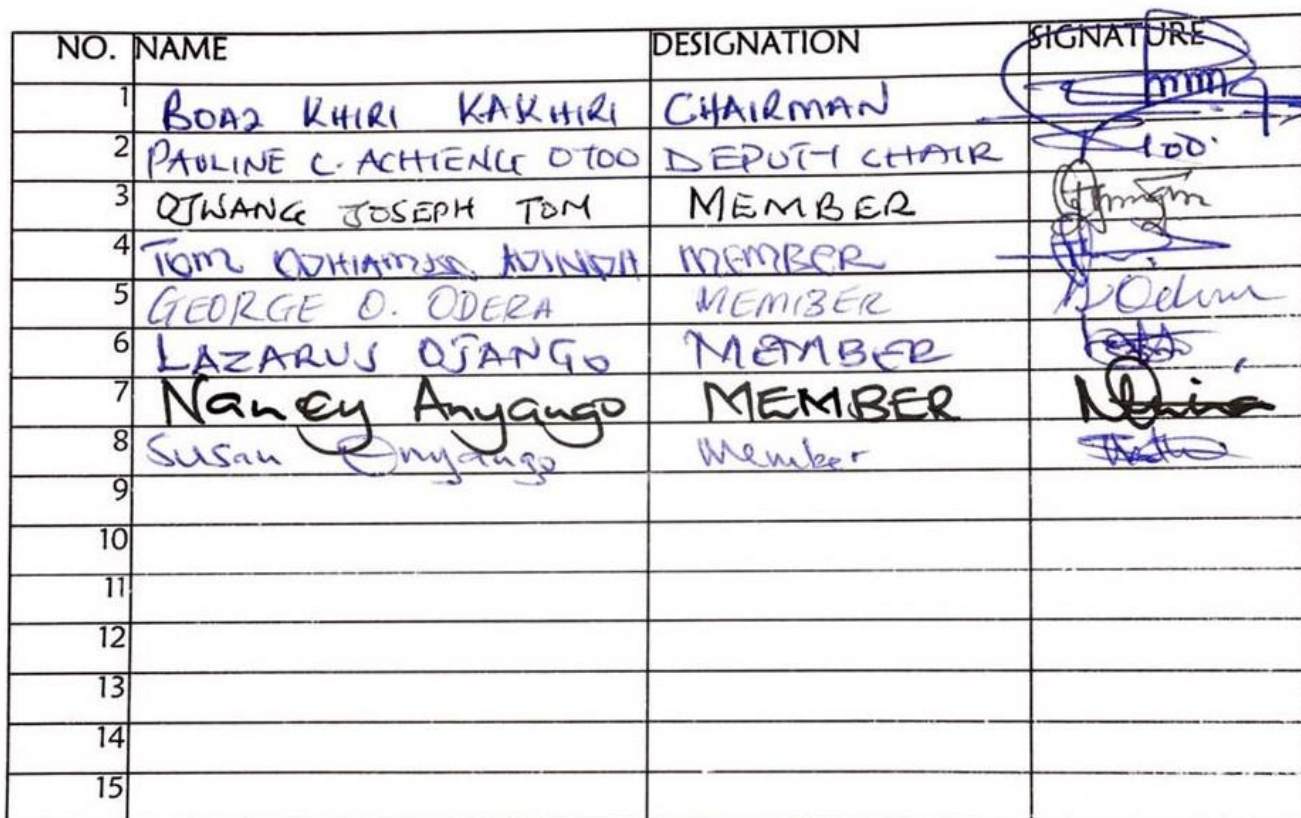 NO. NAME DESIGNATION SIGNATURE
1 BOAZ KHIRI KAKHIRI CHAIRMAN
2 PAULINE C. ACHIENG OTOO DEPUTY CHAIR
3 OJWANG JOSEPH TOM MEMBER
4 TOM MEMBER
5 GEORGE O. ODERA MEMBER
6 LAZARUS OJANGO MEMBER
7 Nancy Anyango MEMBER
8 Susan Onyango Member
9
10
11
12
13
14
15